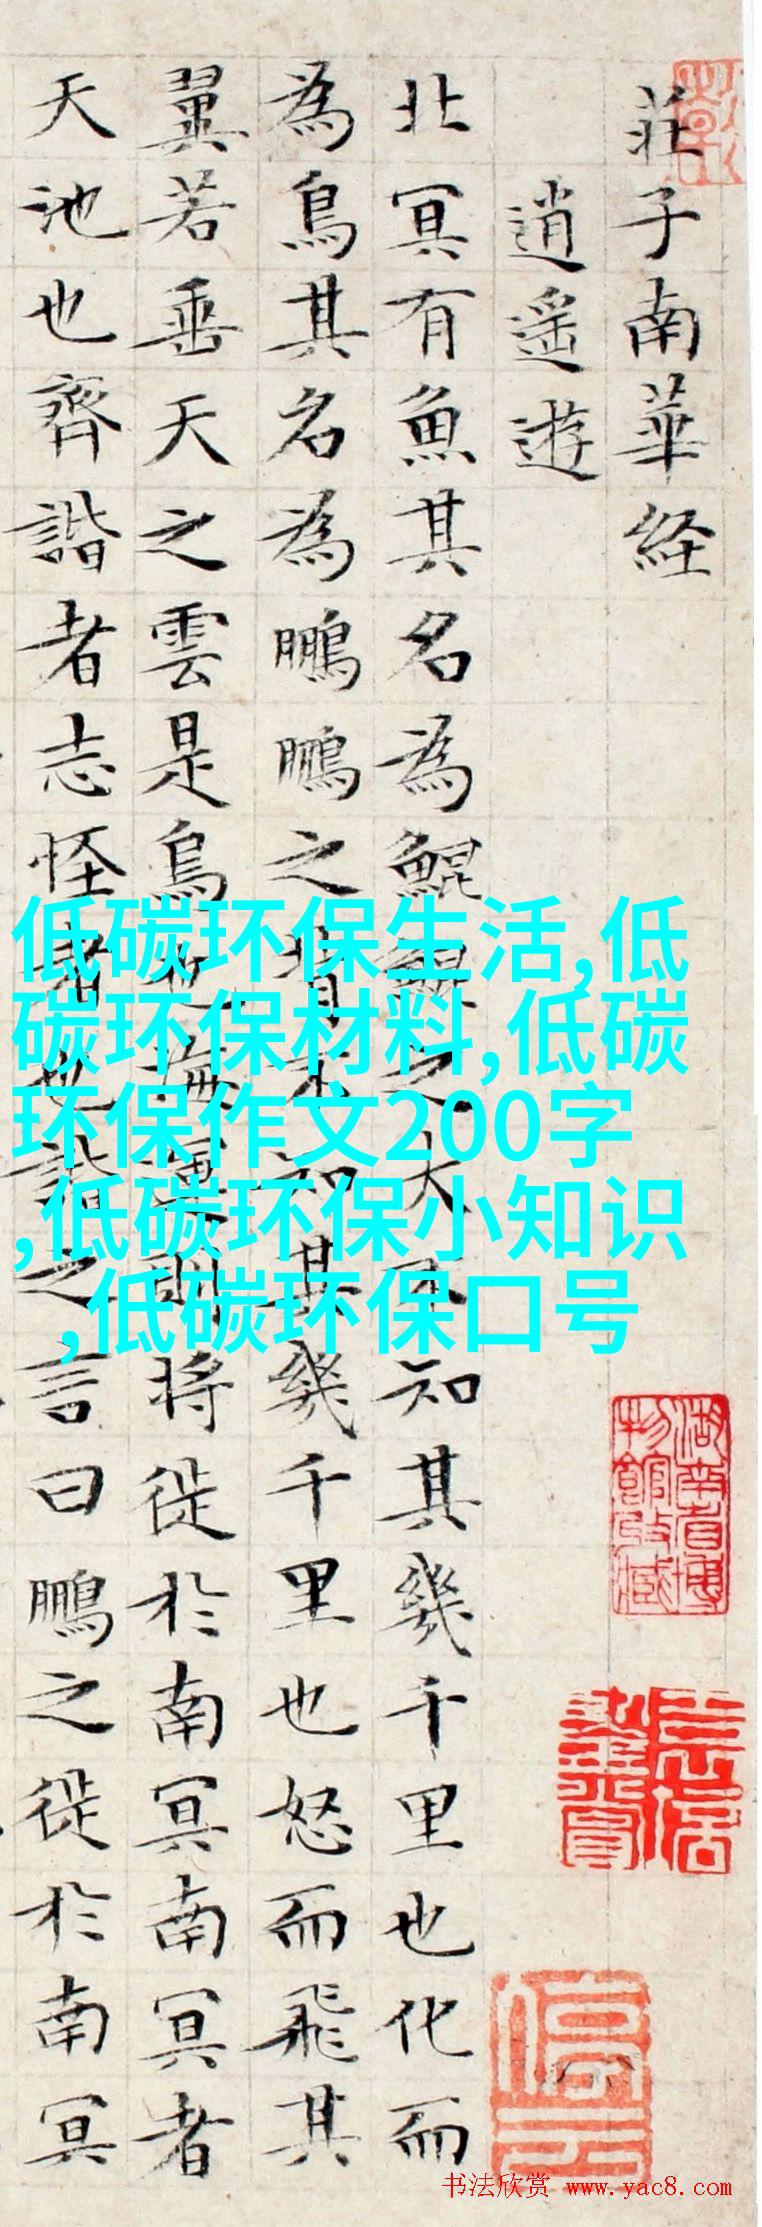 莊子南華経
逍遥遊
北冥有魚其名為鯤鯤之大不知其幾千里也化而
為鳥其名為鵬鵬之背不知其幾千里也怒而飛其
翼若垂天之雲是鳥也海運則将徙於南冥南冥者
天池也齊諧者志怪者也諧之言曰鵬之徙於南冥
低碳环保生活,低
碳环保材料,低碳
环保作文200字
,低碳环保小知识
,低碳环保口号
湖南省博物館收藏
书法欣赏 www.yac8.com